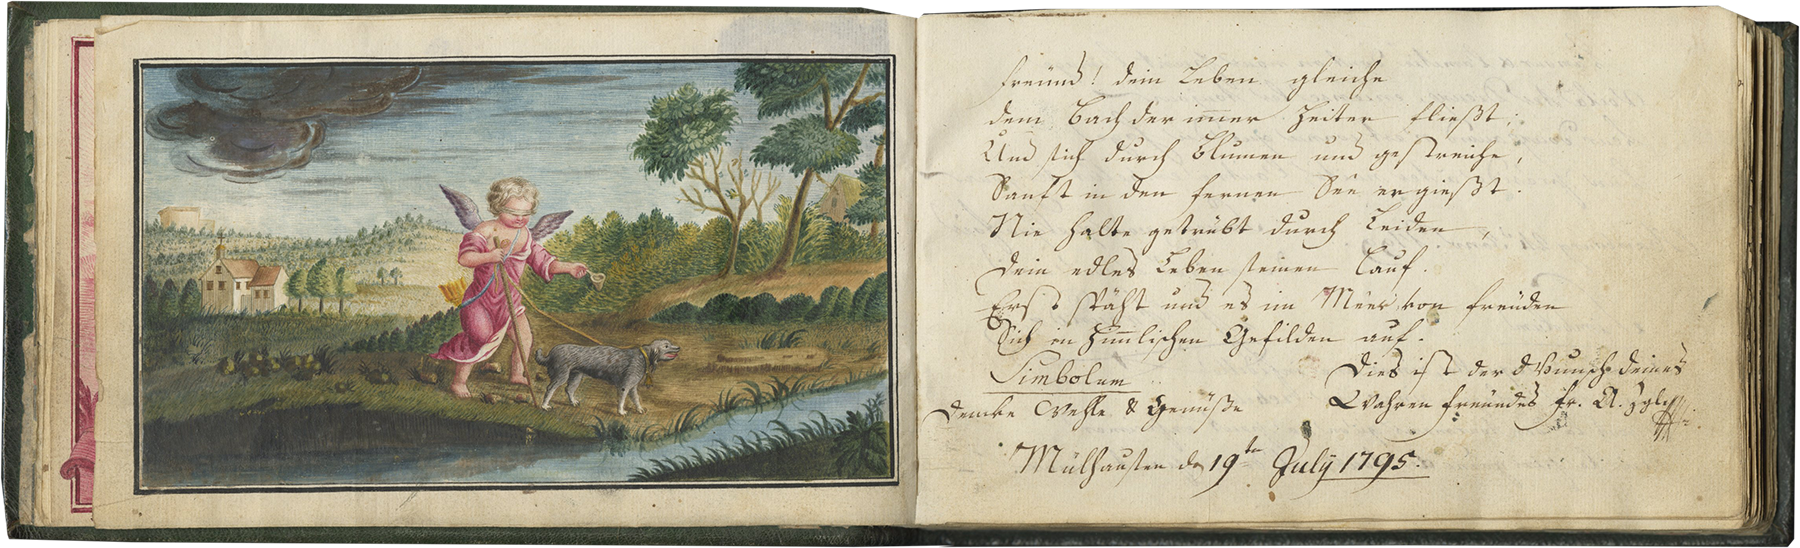 Freünd! dein Leben gleiche
dem Bach der immer Heiter fließt;
Und sich durch Blumen und gestreiche,
Sanft in den fernen See ergießt.
Nie halte getrübt durch Leiden,
Dein edles Leben seinen Lauf.
Erst späht und es im Meer von freüden
Sich in Himlischen Gefilden auf.
Simbolum
Dencke Wehle & Genüße
Dies ist der Wunsch deines
Wahren freündes fr. A.
Mülhausen den 19ten July 1795.